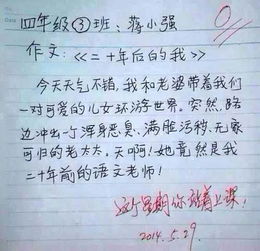 四年级③班：蒋小强
0
作文：《二十年后的我》
今天天气不错，我和老婆带着我们
一对可爱的儿女环游世界。突然，路
边冲出一个浑身恶臭、满脸污秽、无家
可归的老太太，天啊！她竟然是我
二十年前的语文老师！
这个星期你站着上课！
2014.5.29.